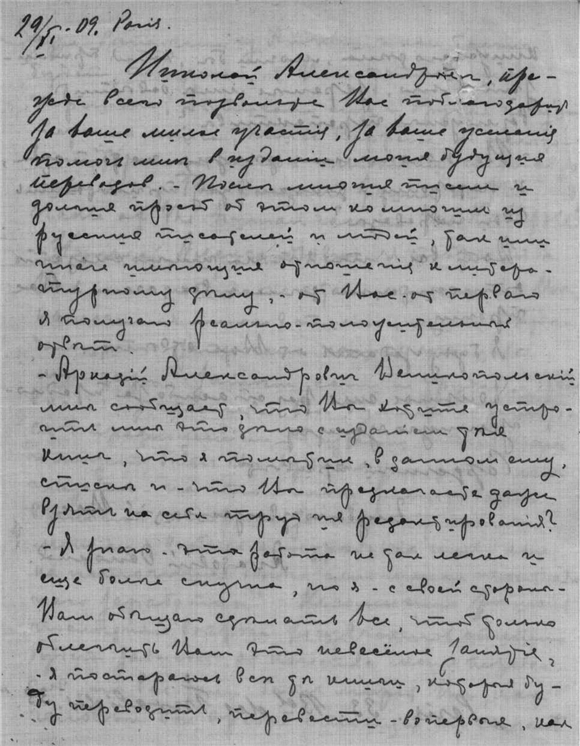 29/XI.-09. Paris.
Николай Александровичъ, пре-
жде всего позвольте Васъ поблагодарить
за ваше милое участіе, за ваше усиліе
помочь мнѣ въ изданіи моихъ будущихъ
переводовъ. - Послѣ многихъ писемъ и
долгихъ просьбъ объ этомъ ко многимъ изъ
русскихъ писателей и людей, такъ или
иначе имѣющихъ отношенія къ литера-
турному дѣлу, - отъ Васъ - отъ перваго
я получаю реально-положительный
отвѣтъ.
- Аркадій Александровичъ Великопольскій
мнѣ сообщаетъ, что Вы хотите устро-
ить мнѣ это дѣло съ изданіемъ тѣхъ
книгъ, что я помѣтилъ въ данномъ ему
спискѣ и - что Вы предлагаете даже
взять на себя трудъ ихъ редактированія?
- Я знаю - эта работа не такъ легка и
еще болѣе скучна, но я - съ своей стороны -
Вамъ обѣщаю сдѣлать все, чтобъ только
облегчить Вамъ это невесёлое занятіе,
- я постараюсь всѣ тѣ книги, которыя бу-
ду переводить, перевести - во-первыхъ, какъ